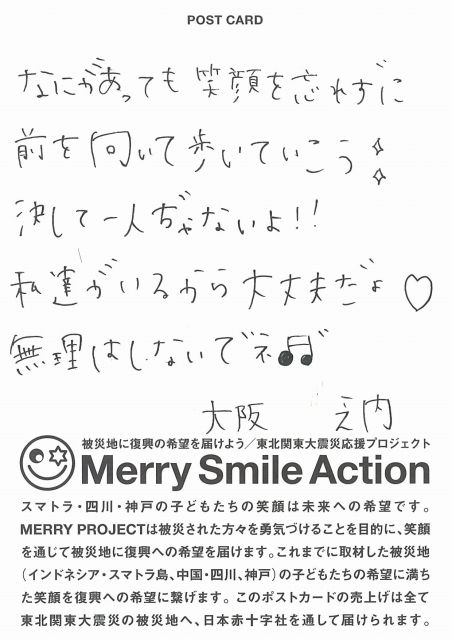 POST CARD
なにがあっても 笑顔を忘れずに
前を向いて歩いていこう✧✧
決して一人ぢゃないよ!!
私達がいるから大丈夫だょ♡
無理はしないでネ♫
大阪 之内
被災地に復興の希望を届けよう/東北関東大震災応援プロジェクト
Merry Smile Action
スマトラ・四川・神戸の子どもたちの笑顔は未来への希望です。
MERRY PROJECTは被災された方々を勇気づけることを目的に、笑顔
を通じて被災地に復興への希望を届けます。これまでに取材した被災地
(インドネシア・スマトラ島、中国・四川、神戸)の子どもたちの希望に満ち
た笑顔を復興への希望に繋げます。このポストカードの売上げは全て
東北関東大震災の被災地へ、日本赤十字社を通して届けられます。